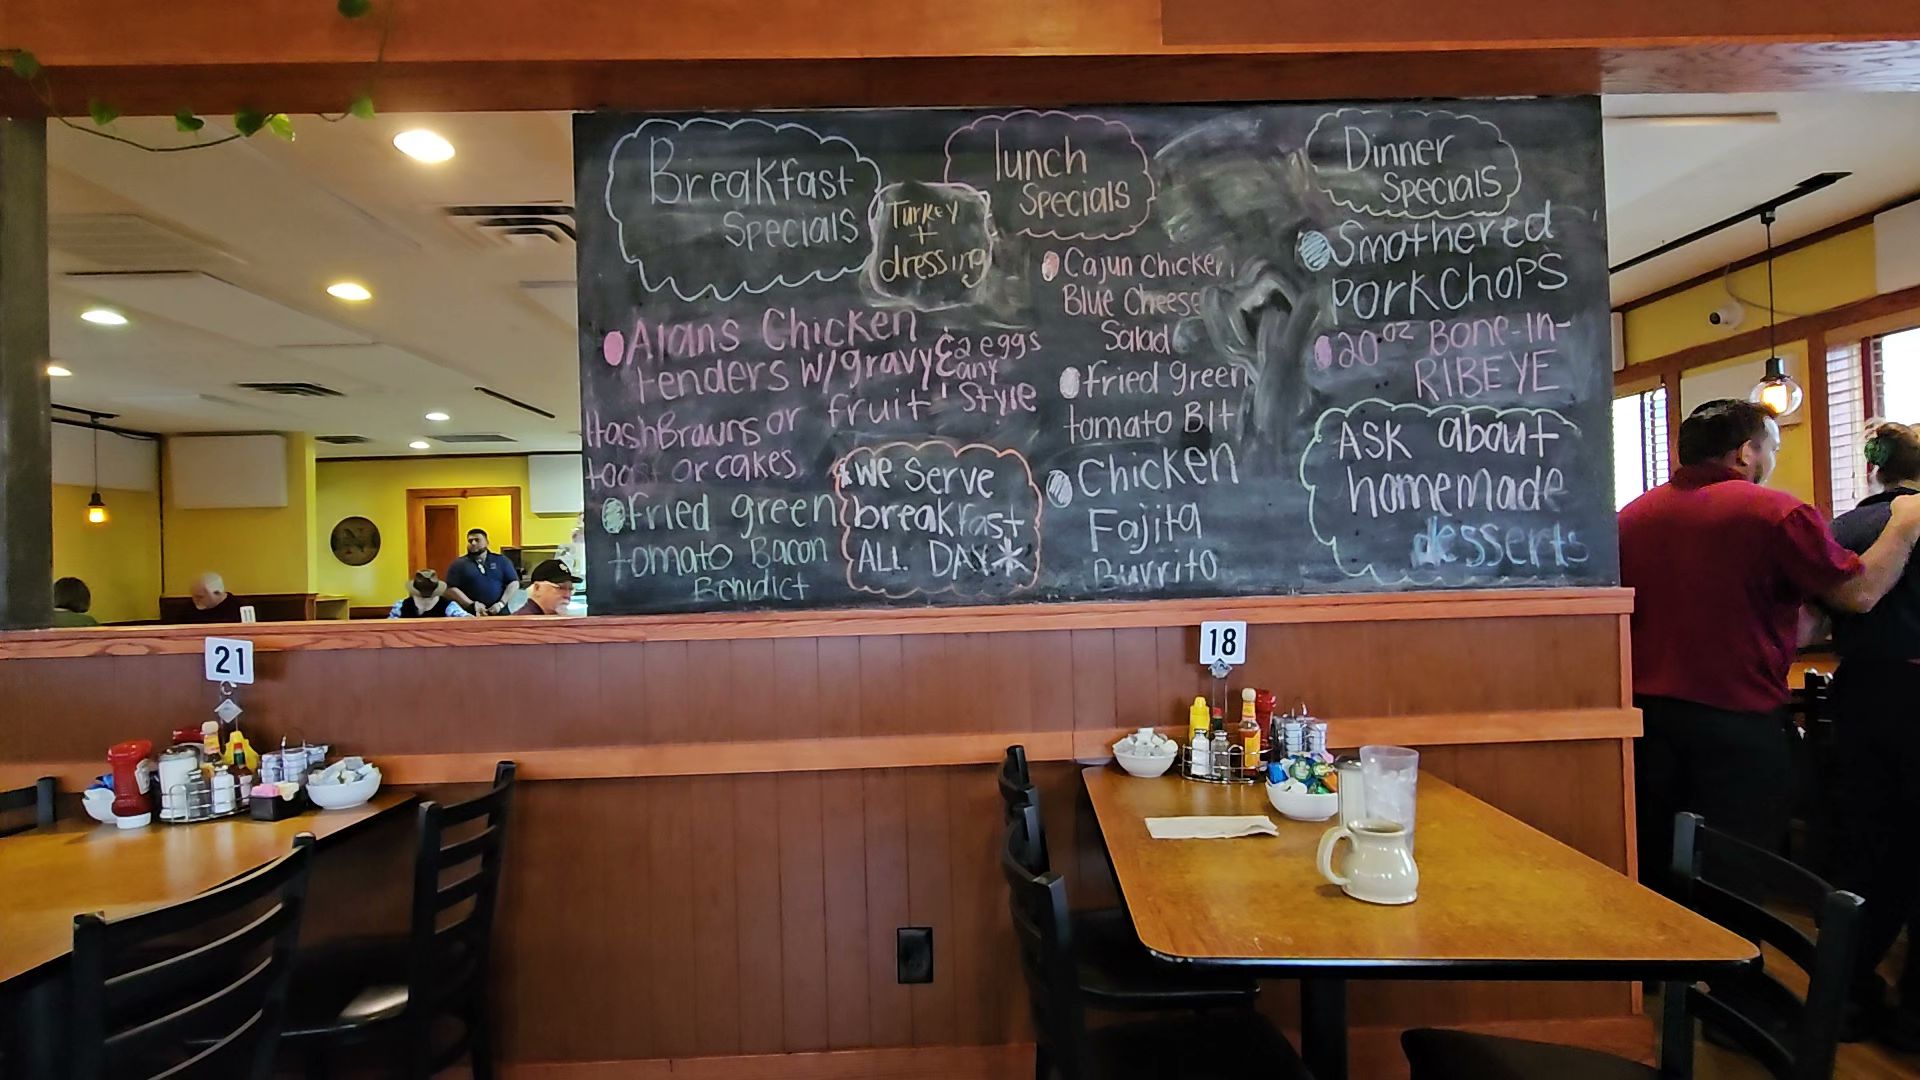 Breakfast
Specials
Turkey
+
dressing
Alans Chicken
tenders w/gravy & 2 eggs
& any
Style
HashBrowns or fruit
toast or cakes
fried green
tomato Bacon
Benidict
*We Serve
breakfast
ALL DAY*
lunch
Specials
Cajun Chicken
Blue Cheese
Salad
fried green
tomato Blt
Chicken
Fajita
Burrito
Dinner
Specials
Smothered
PORKCHOPS
20oz Bone-In-
RIBEYE
ASK about
homemade
desserts
21
18